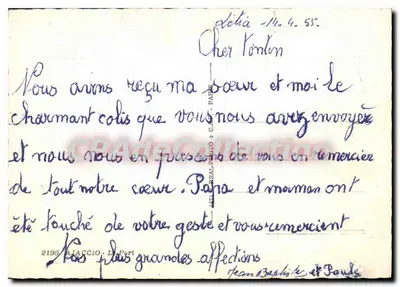 Létia 14.4.55.
Cher Tontin
Nous avons reçu ma sœur et moi le
charmant colis que vous nous avez envoyer
et nous nous en pressons de vous en remercier
de tout notre cœur. Papa et maman ont
été touché de votre geste et vous remercient
2196 AJACCIO - Le Port
Nos plus grandes affections
Jean Baptiste et Paule